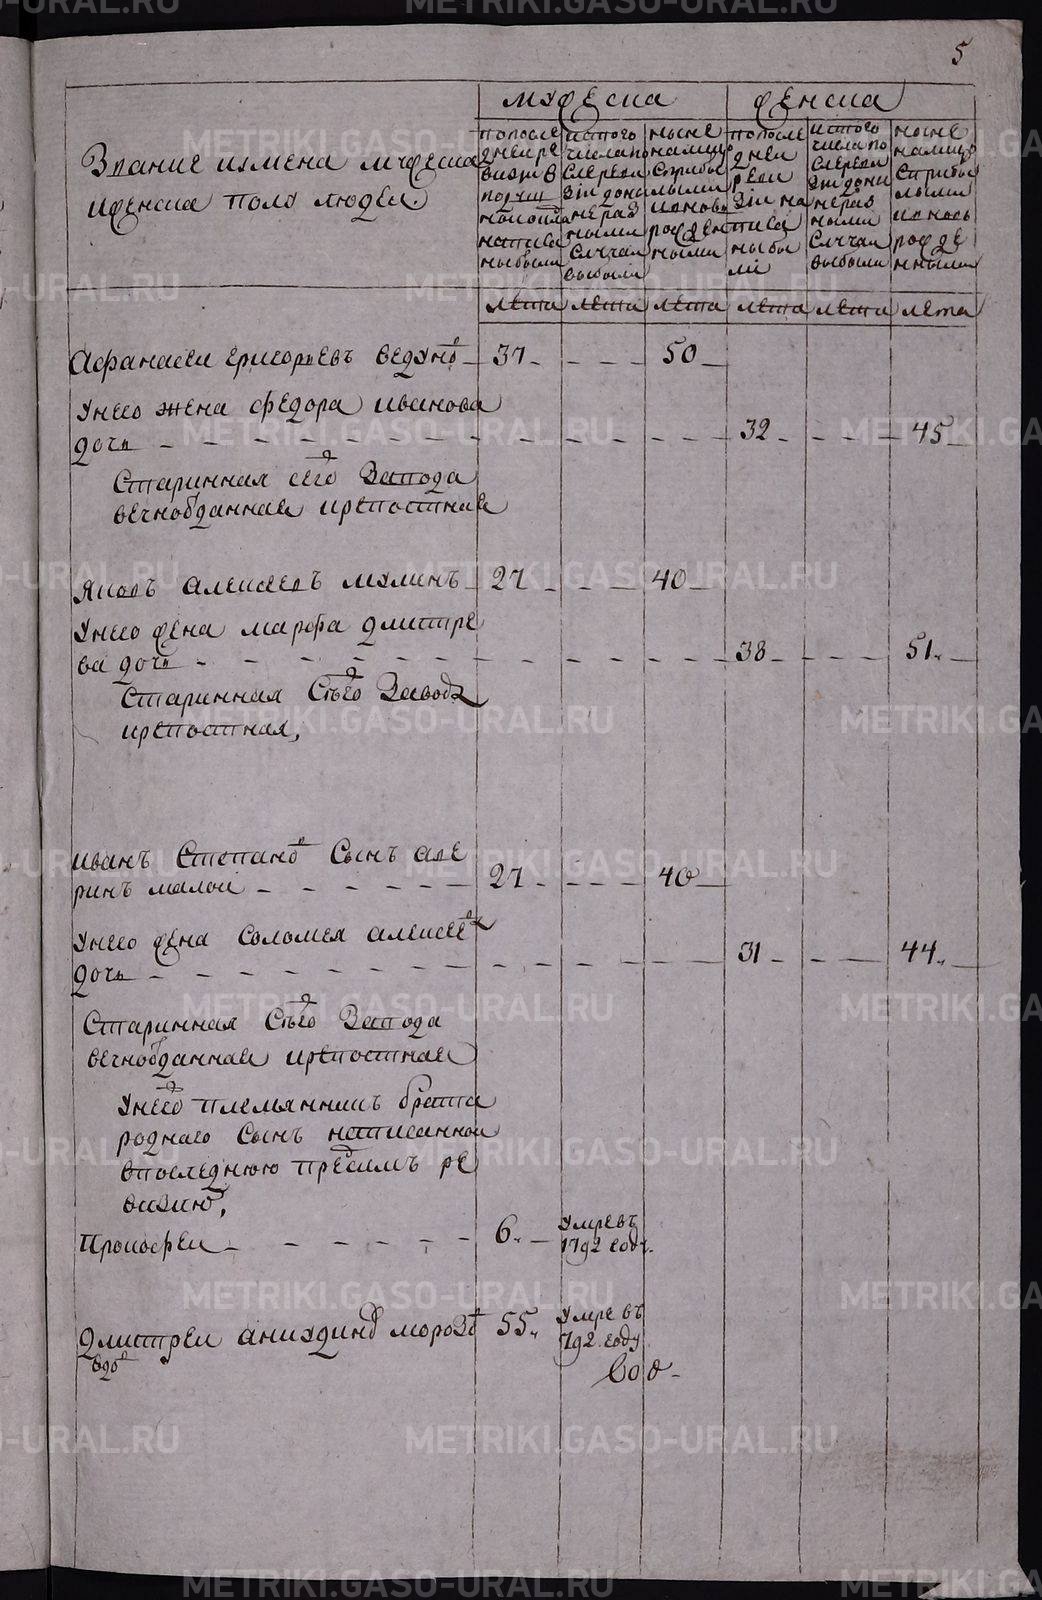 5
мужеска
женска
Звание и имена мужеска
и женска полу людей.
по после
дней ре
визiи в
написа
ны были
ис того
числа по
слѣ реви
зiи до ны
не раз
ными
случаи
выбыли
ныне
на лицо
с прибы
лыми
и вновь
рожден
ными
по после
дней
реви
зiи на
писа
ны бы
ли
ис того
числа по
слѣ реви
зiи до ны
не раз
ными
случаи
выбыли
ныне
на лицо
с прибы
лыми
и вновь
рожде
нными
лета лета лета лета лета лета
Афанасеи Григорьевъ 37 50
У него жена Федора Иванова
дочь 32 45
Старинная сего завода
вечноотданная крепостная
Яковъ Алексеевъ Мулинъ 27 40
У него жена Марфа Дмитре
ва дочь 38 51
Старинная сего завода
крепостная,
Иванъ Степановъ сынъ
ринъ малои 27 40
У него жена Соломея Алексеева
дочь 31 44
Старинная сего завода
вечноотданная крепостная
У него племянникъ брата
роднаго сынъ написанной
в последнюю пред симъ ре
визию,
Прокофеи 6 умре въ
1792 году.
Дмитреи Аникудиновъ Морозовъ 55 умре въ
792 году
вдовъ
METRIKI.GASO-URAL.RU